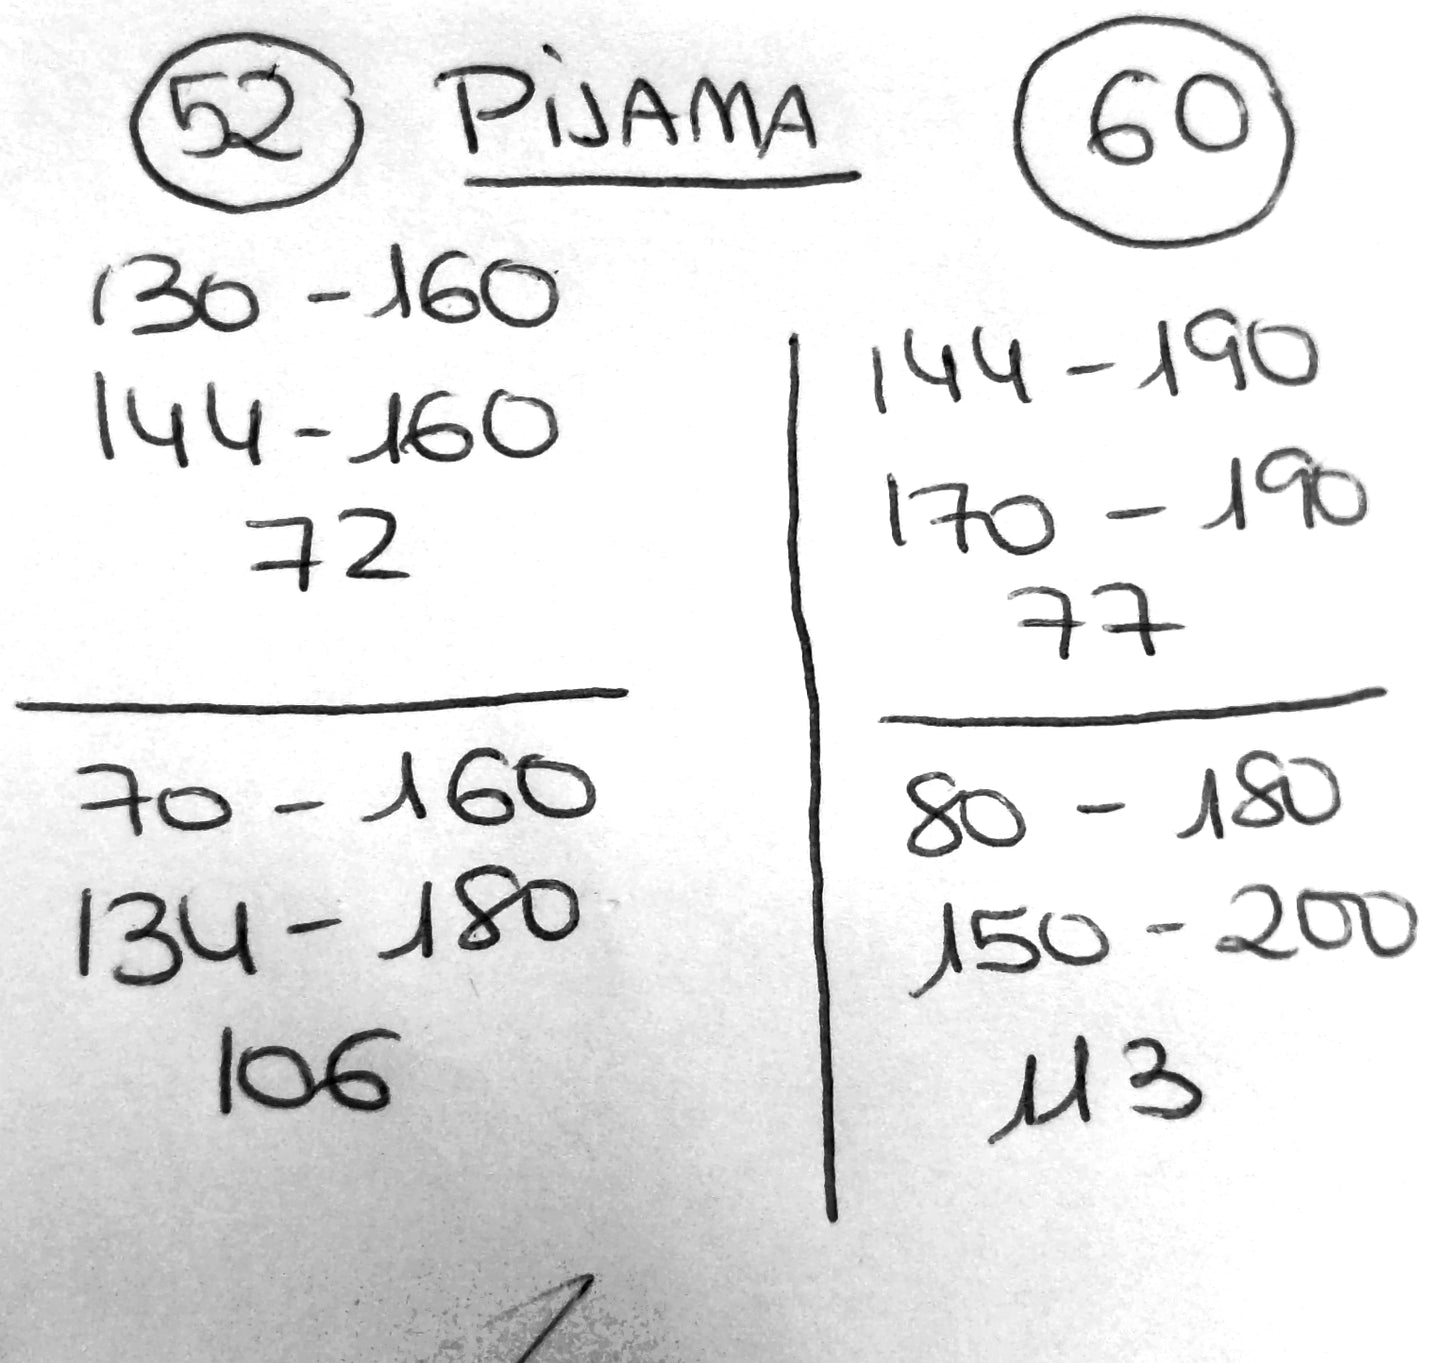 52 PİJAMA 60
130 - 160
144 - 160
72
70 - 160
134 - 180
106
144 - 190
170 - 190
77
80 - 180
150 - 200
113